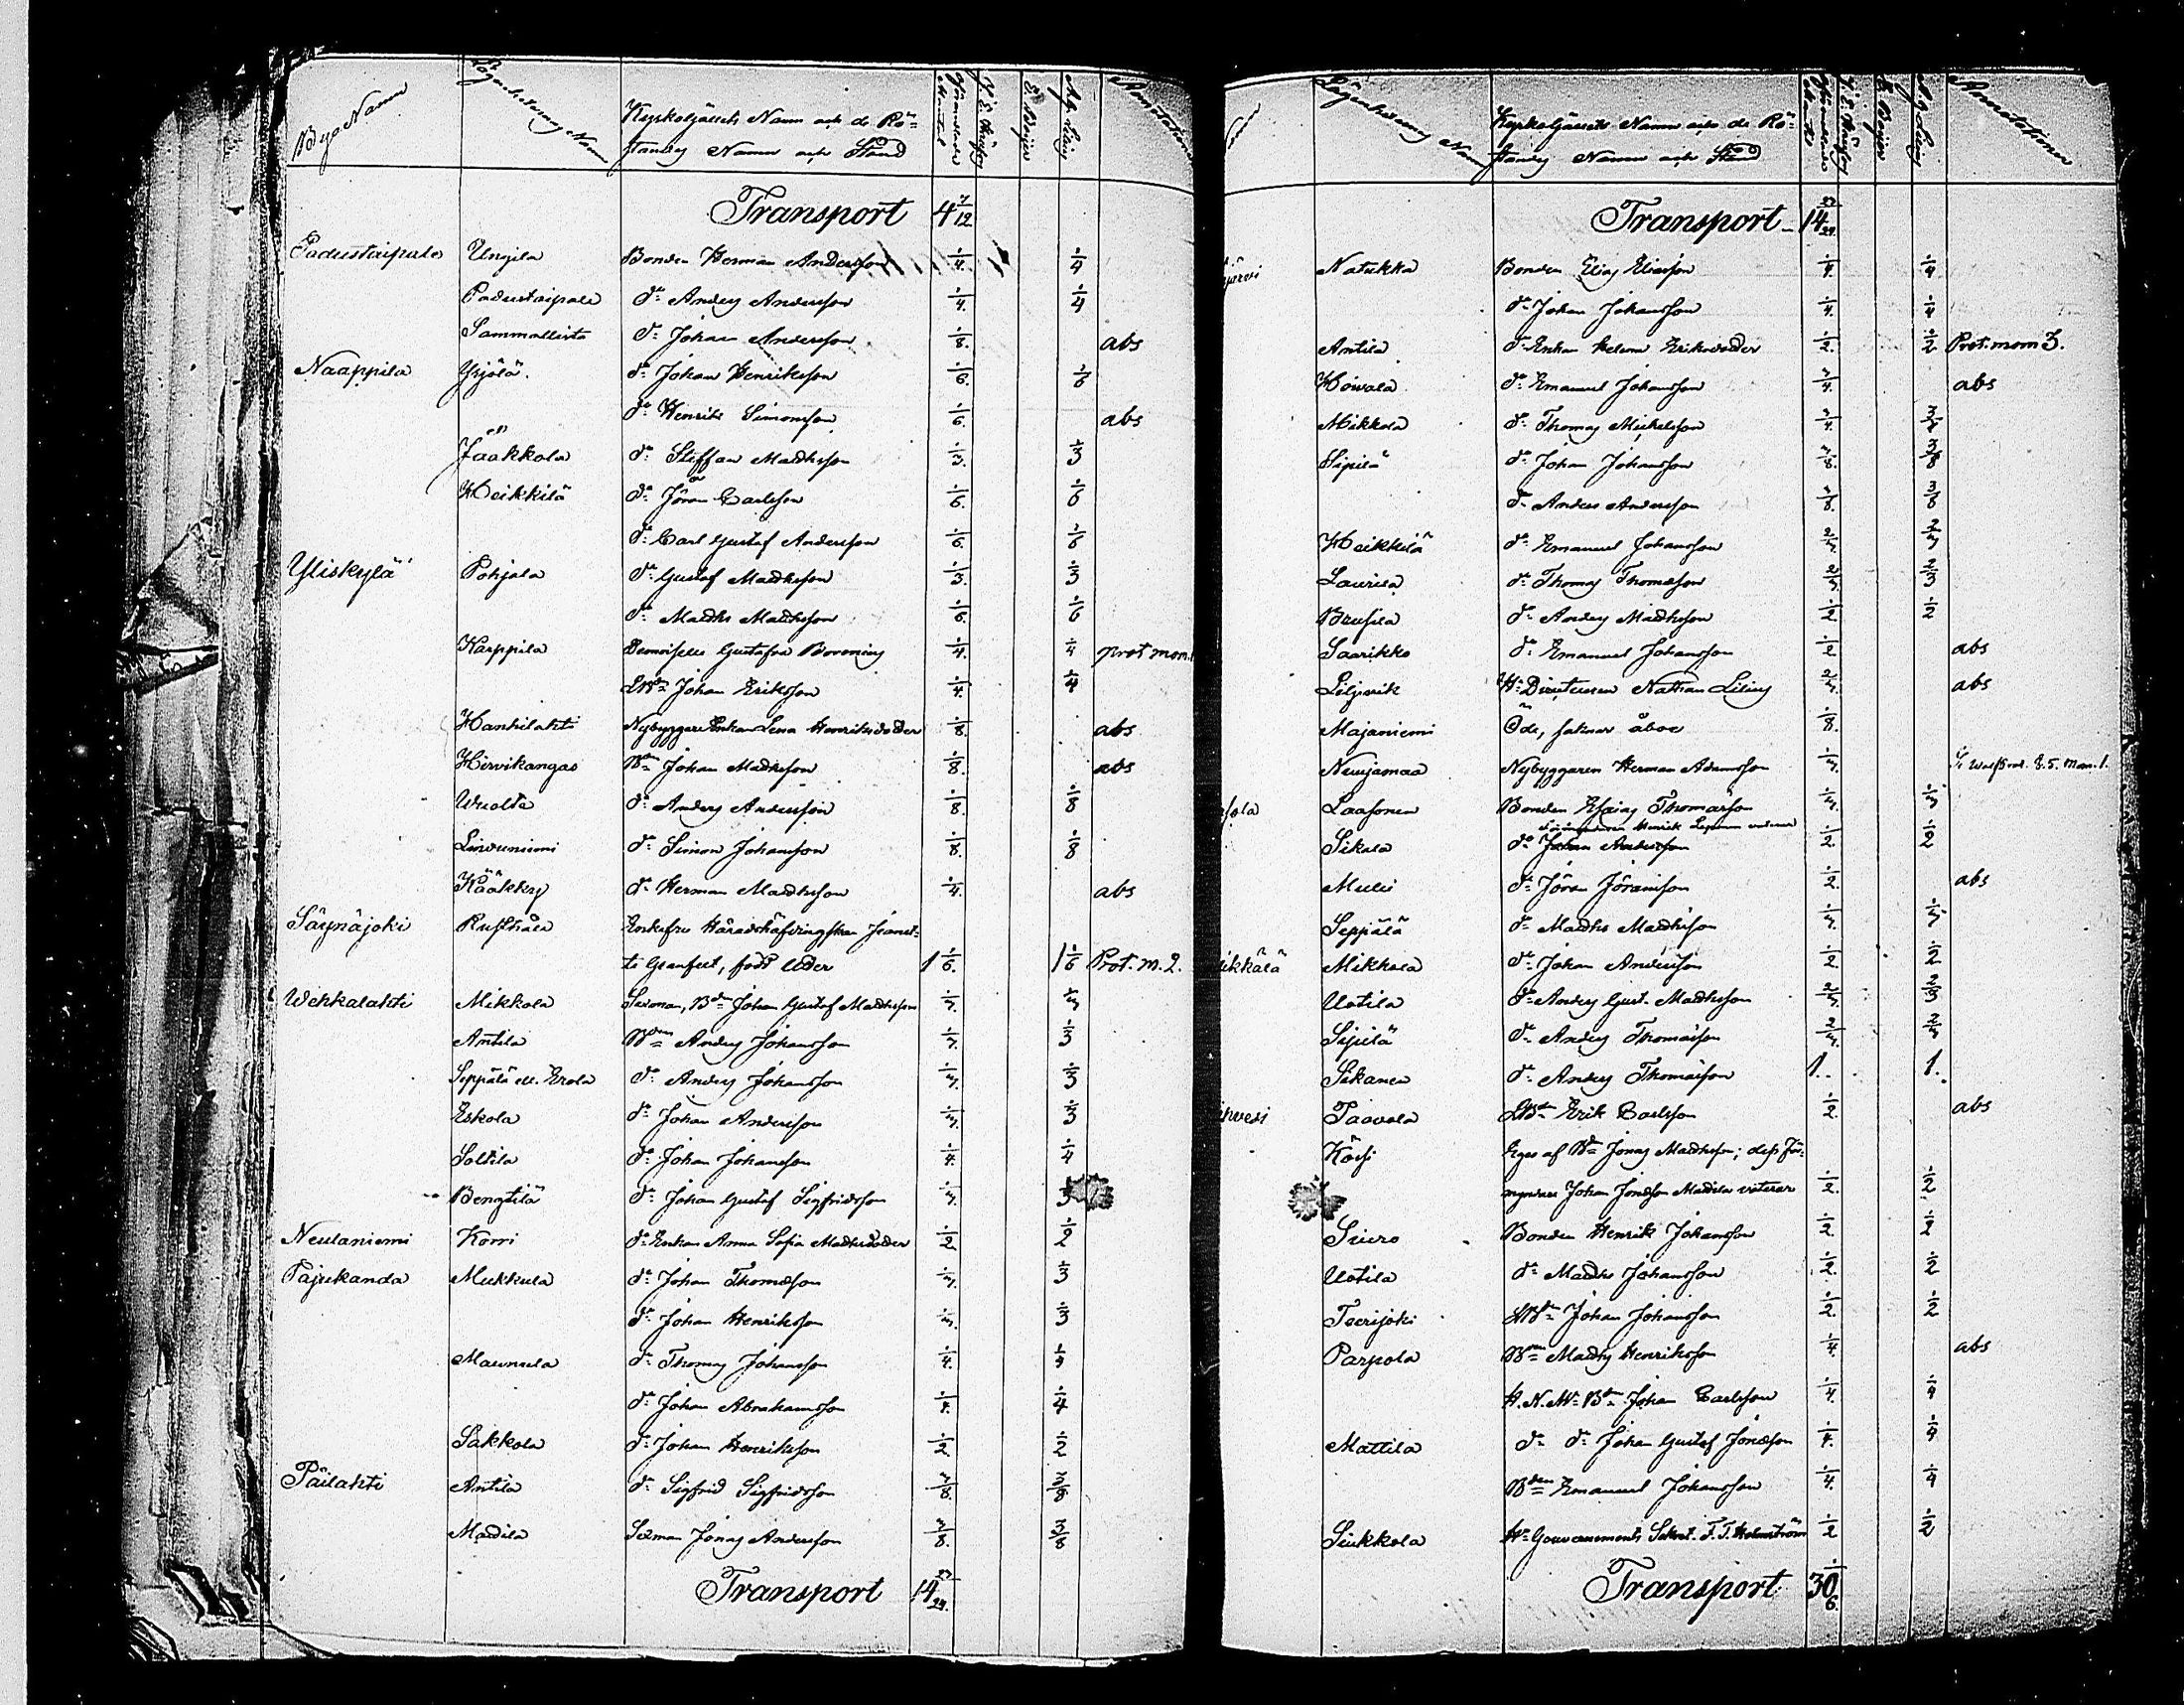 ByaNamn Lägenheternes Namn Kyrkoljusets Namn och de Rö- Förmedlade Mantal J. E. Ag. Annotationer
standes Namn och Stånd
Transport 4 7/12
Padustaipale Ungila Bonden Herman Andersson 1/4. 1/4
Padustaipale do Anders Andersson 1/4. 1/4
Sammallisto do Johan Andersson 1/8. abs
Naappila Yrjölä. do Johan Henriksson 1/6. 1/6
do Henrik Simonsson 1/6. abs
Jaakkola do Steffan Matthsson 1/3. 1/3
Heikkilä do Jöran Carlsson 1/6. 1/6
do Carl Gustaf Andersson 1/6. 1/6
Yliskylä Pohjala do Gustaf Matthsson 1/3. 1/3
do Matths Matthsson 1/6. 1/6
Karppila Demoiselle Gustafva Boronius 1/4. 1/4 prot mom.
LBdn Johan Eriksson 1/4. 1/4
Hankilahti Nybyggare Enkan Lena Henriksdotter 1/8. abs
Hirvikangas Bdn Johan Matthsson 1/8. abs
Wuolta do Anders Andersson 1/8. 1/8
Linvuniemi do Simon Johansson 1/8. 1/8
Kääkky do Herman Matthsson 1/4. abs
Säynäjoki Rusthåll Enkefru Häradshöfdingskan Jeanet-
te Granfelt, född Uder 1 1/6. 1 1/6 Prot. m. 2.
Wehkalahti Mikkola Sexman, Bdn Johan Gustaf Matthsson 1/3. 1/3
Antila Bdn Anders Johansson 1/3. 1/3
Seppälä ell. Erola do Anders Johansson 1/3. 1/3
Eskola do Johan Andersson 1/3. 1/3
Soltila do Johan Johansson 1/4. 1/4
Bengtilä do Johan Gustaf Sigfridsson 1/3. 3
Neulaniemi Korri do Enkan Anna Sofia Matthsdotter 1/2 1/2
Pajukanda Mukkula do Johan Thomasson 1/3. 1/3
do Johan Henriksson 1/3. 1/3
Maunula do Thomas Johansson 1/4. 1/4
do Johan Abrahamsson 1/4. 1/4
Sakkola do Johan Henriksson 1/2. 1/2
Päilahti Antila do Sigfrid Sigfridsson 3/8. 3/8
Mattila Sexman Jonas Andersson 3/8. 3/8
Transport 14 23/24.
Lägenheternes Namn Kyrkoljusets Namn och de Rö- Förmedlade Mantal J. E. Ag. Annotationer
standes Namn och Stånd
Transport 14 23/24.
järvi Natukka Bonden Elias Eliasson 1/4. 1/4
do Johan Johansson 1/4. 1/4
Antila do Enkan Helena Eriksdotter 1/2. 1/2 Prot. mom 3.
Hoivala do Emanuel Johansson 3/4. abs
Mikkola do Thomas Michelsson 3/4. 3/4
Sipilä do Johan Johansson 3/8. 3/8
do Anders Andersson 3/8. 3/8
Heikkilä do Emanuel Johansson 2/3. 2/3
Laurila do Thomas Thomasson 2/3. 2/3
Brusila do Anders Matthsson 1/2. 1/2
Saarikko do Emanuel Johansson 1/2 abs
Liljevik Hr Direkteuren Nathan Lilius 2/3. abs
Majaniemi Öde, saknar åboe 1/8.
Neujamaa Nybyggaren Herman Adamsson 1/3. mom. 1.
sola Laasonen Bonden Esaias Thomasson 1/3. 1/3
Henrik
Sikala do Johan Andersson 1/2. 1/2
Muli do Jöran Jöransson 1/2. abs
Seppälä do Matths Matthsson 1/3. 1/3
ikkälä Mikkola do Johan Andersson 1/2. 1/2
Uotila do Anders Gust. Matthsson 2/3. 2/3
Sipilä do Anders Thomasson 2/3. 2/3
Sikanen do Anders Thomasson 1. 1.
hvesi Paavola LBdn Erik Carlsson 1/2. abs
Körsi Eges af Bdn Jonas Matthsson; dess För-
myndare Johan Jonasson Mattila voterar 1/2. 1/2
Siiro Bonden Henrik Johansson 1/2. 1/2
Uotila do Matths Johansson 1/2. 1/2
Teerijoki LBdn Johan Johansson 1/2. 1/2
Parpola Bdn Matths Henriksson 1/4. abs
H. N. M. Bdn Johan Carlsson 1/4. 1/4
Mattila do do Johan Gustaf Jonasson 1/4. 1/4
Bden Emanuel Johansson 1/4. 1/4
Siukkola Hr Gouvernements Sekret. F. T. Holmström 1/2 1/2
Transport 30 1/6.